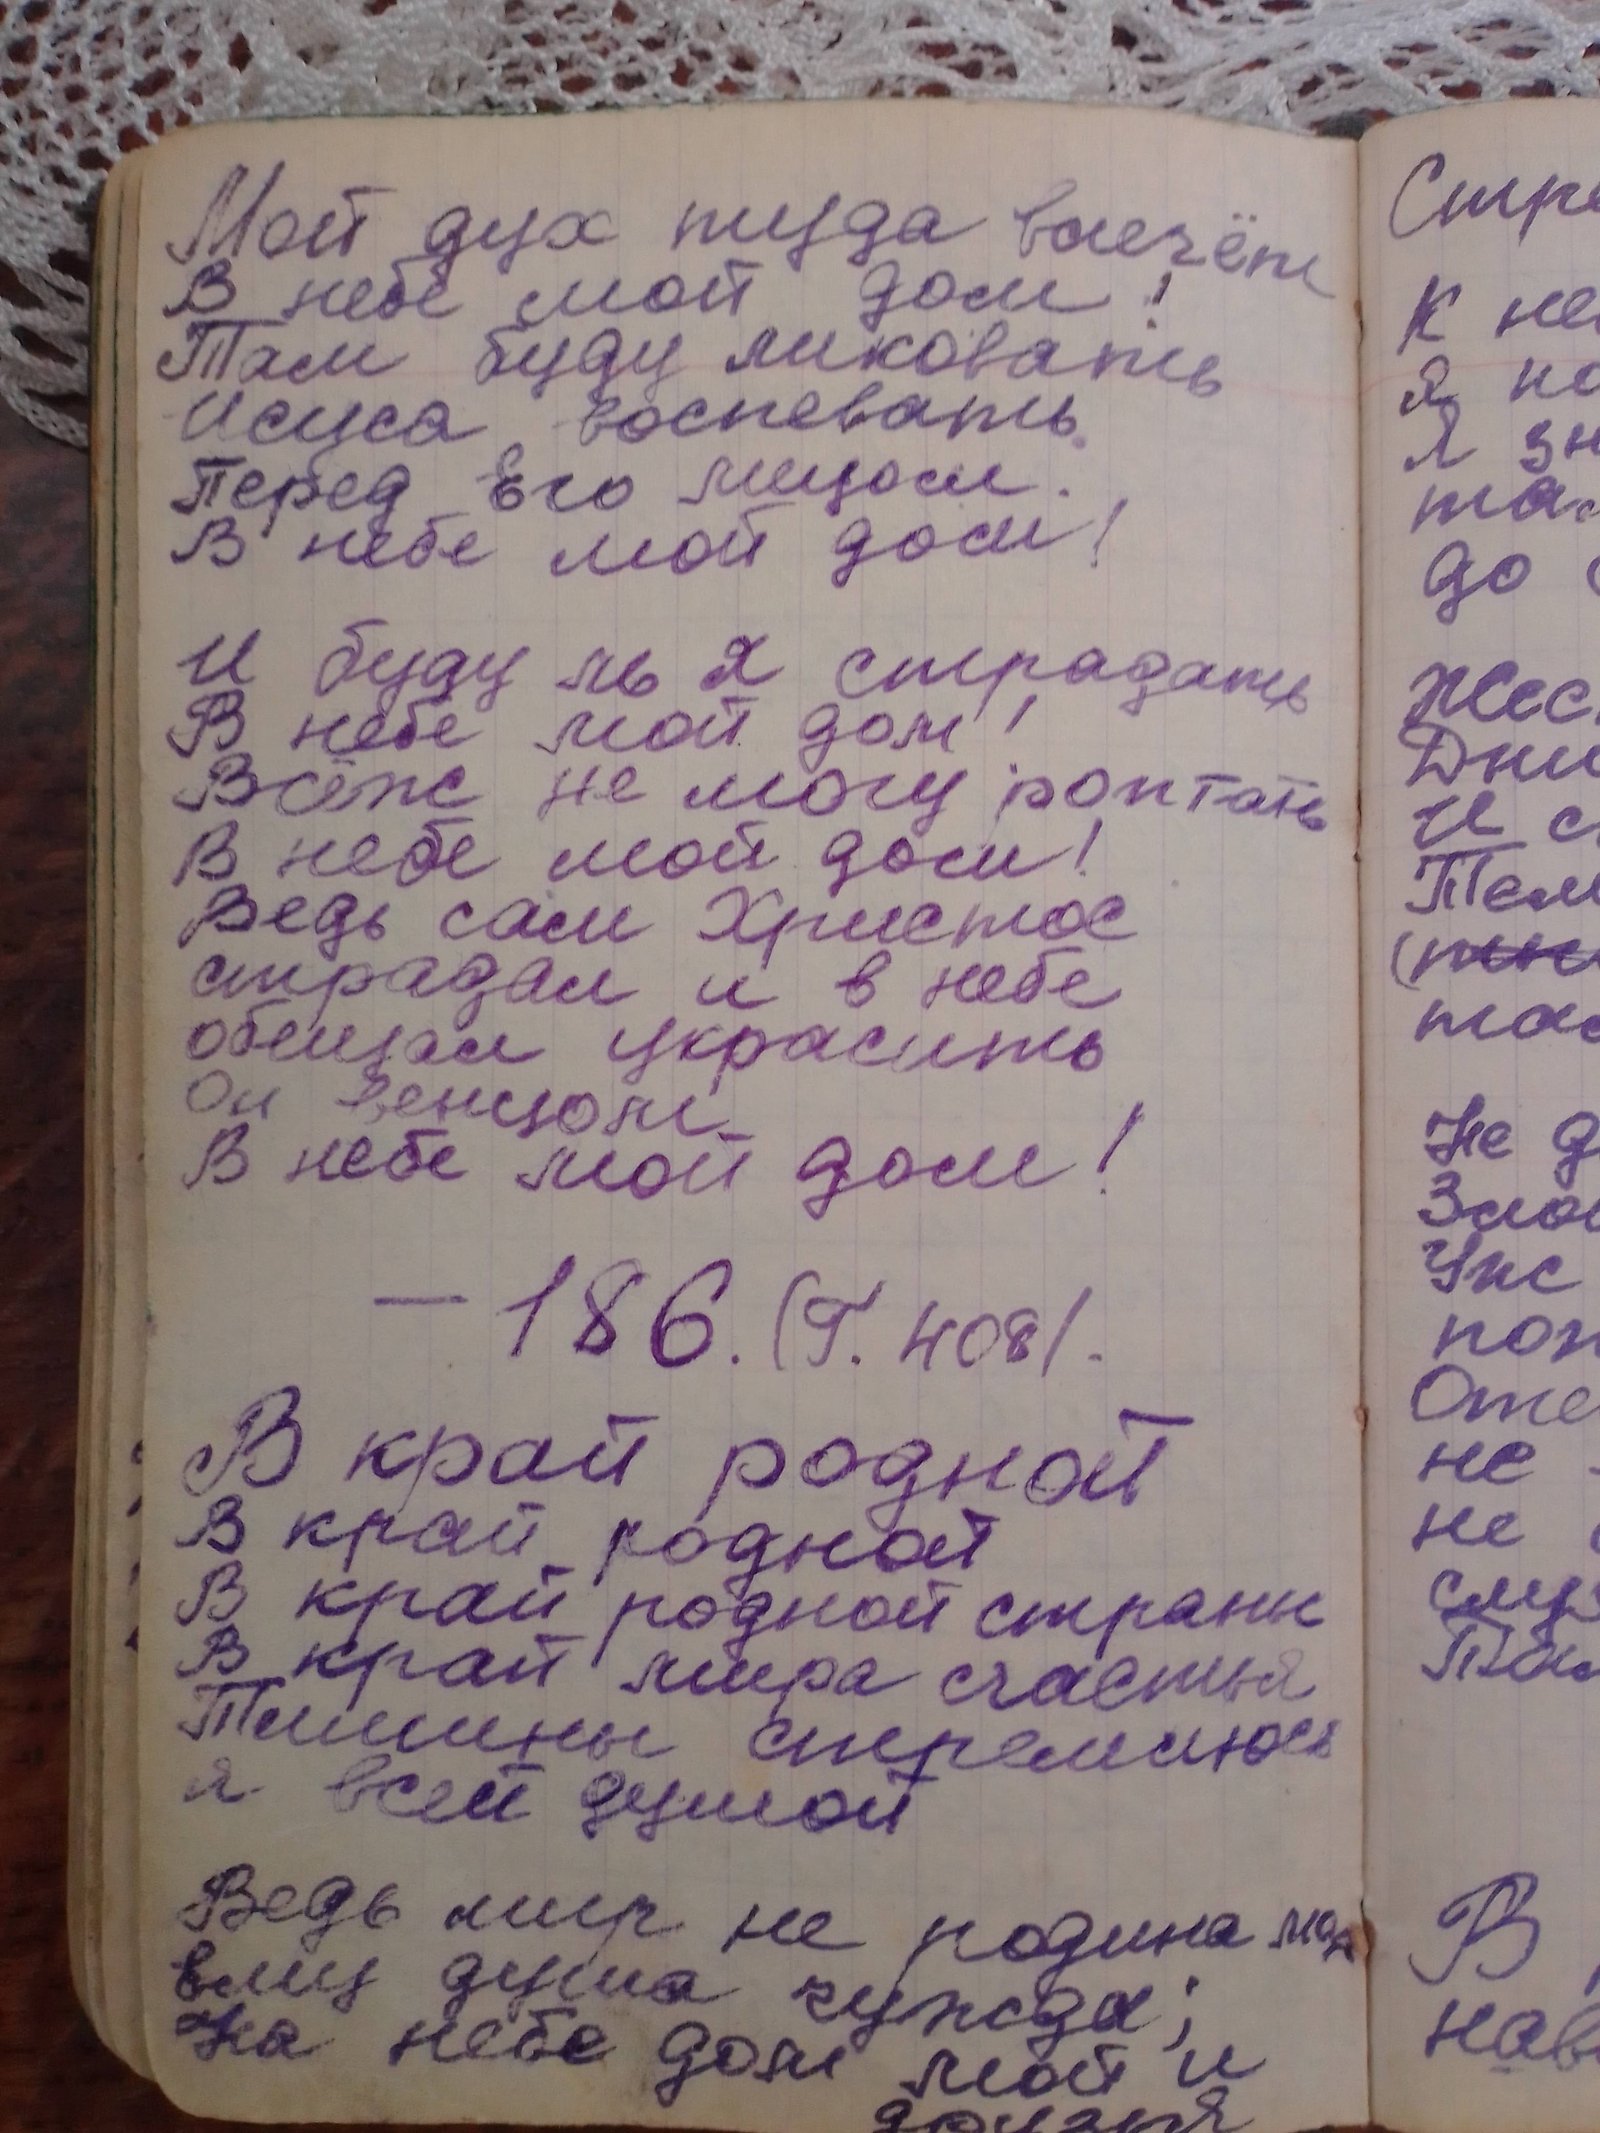 Мой дух туда влечёт
В небе мой дом!
Там буду ликовать
Исуса воспевать
Перед Его лицом.
В небе мой дом!
И буду ль я страдать
В небе мой дом!
Всёж не могу роптать
В небе мой дом!
Ведь сам Христос
страдал и в небе
обещал украсить
Он венцом
В небе мой дом!
— 186. (Г. 408).
В край родной
В край родной
В край родной страны
В край мира счастья
Тишины стремлюсь
я всей душой
Ведь мир не родина моя
ему душа чужда;
На небе дом мой и
друзья
Стре
К не
Я
Я зн
та
до
Жес
Дни
И с
Тем
там
Не д
Зло
Уже
поп
Оте
не
не
слу
В
нав